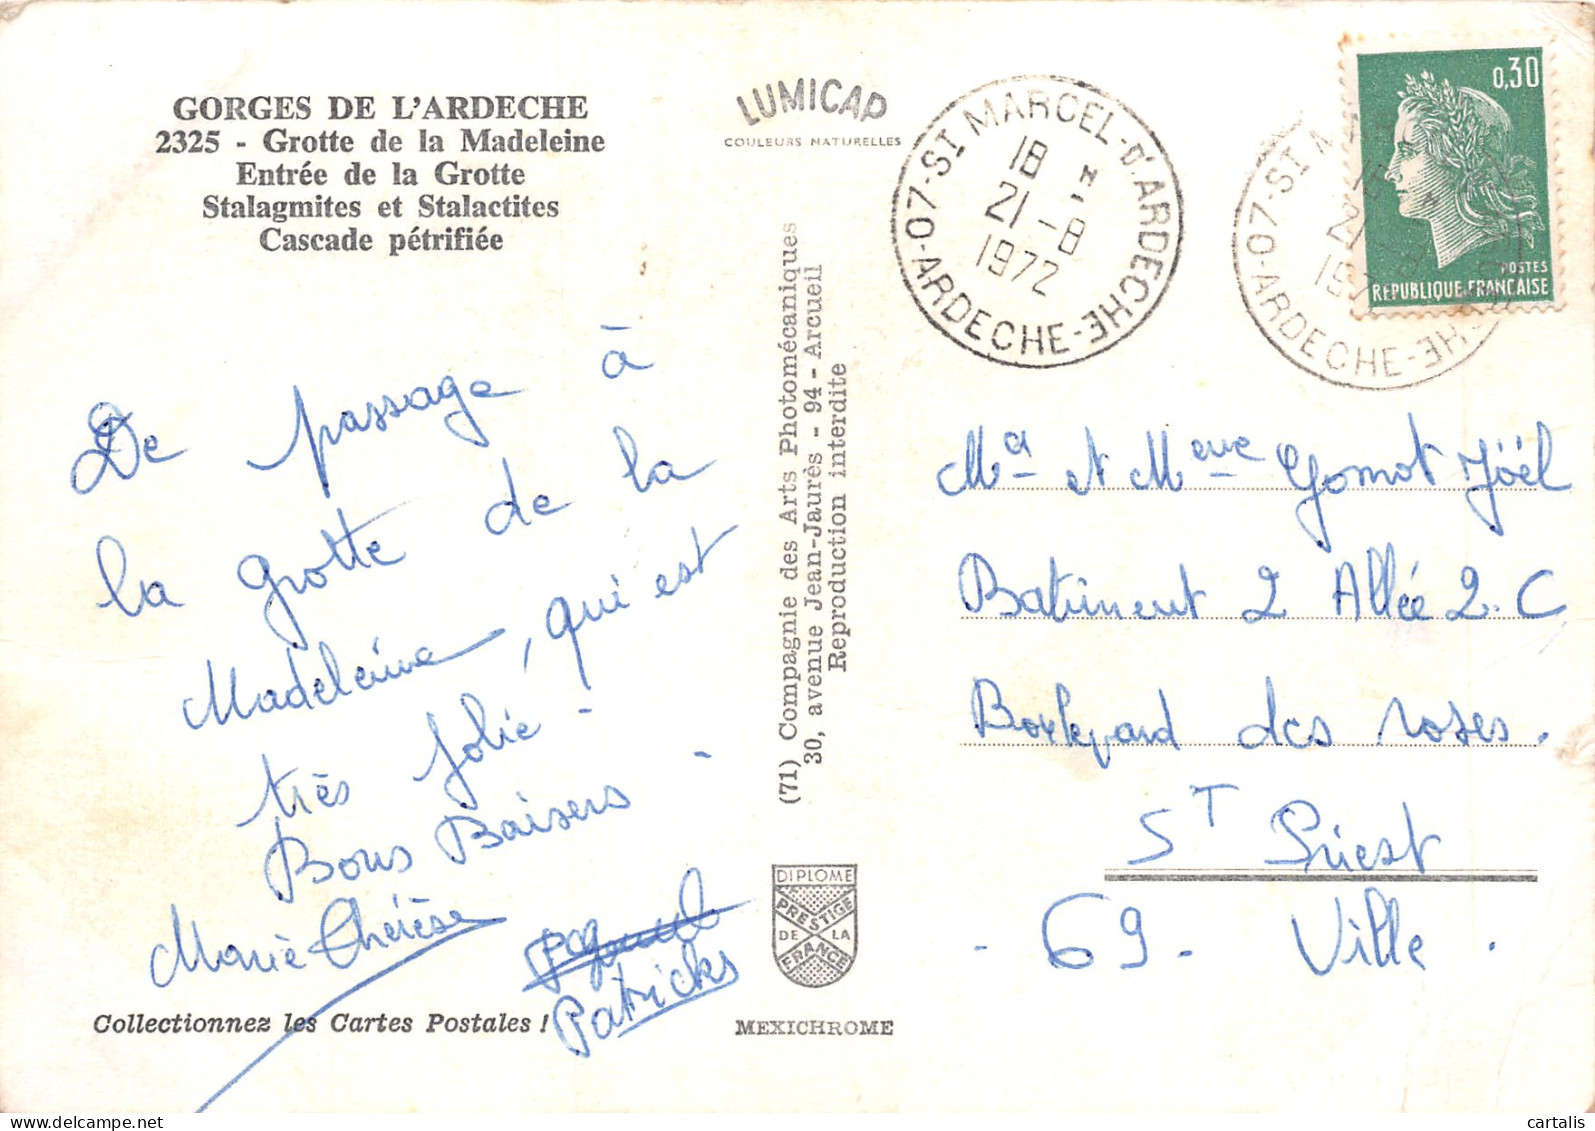 GORGES DE L'ARDECHE
2325 - Grotte de la Madeleine
Entrée de la Grotte
Stalagmites et Stalactites
Cascade pétrifiée
De passage à
la grotte de la
Madeleine, qui est
très jolie -
Bons Baisers -
Marie Thérèse
Patricks
Collectionnez les Cartes Postales !
LUMICAP
COULEURS NATURELLES
(71) Compagnie des Arts Photomécaniques
30, avenue Jean-Jaurès - 94 - Arcueil
Reproduction interdite
DIPLOME
PRESTIGE
DE LA
FRANCE
MEXICHROME
07-ST MARCEL-D'ARDECHE-O-ARDECHE-
18 H
21-8
1972
0,30
POSTES
REPUBLIQUE FRANCAISE
Mr et Mme Gomot Joël
Batiment 2 Allée 2.C
Boulevard des roses.
ST Priest
- 69 - Ville.
cartalis
www.delcampe.net